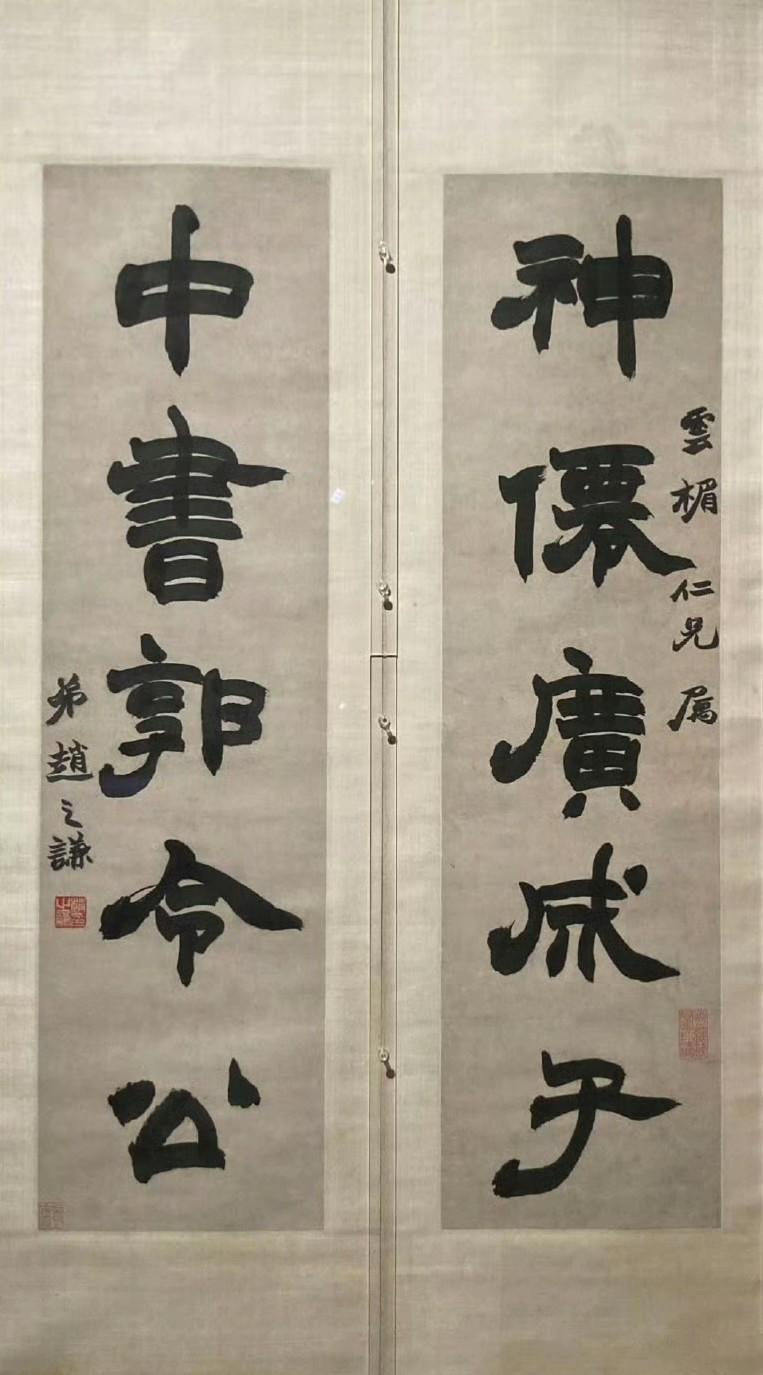 雲楣仁兄属
神僊廣成子
中書郭令公
弟趙之謙